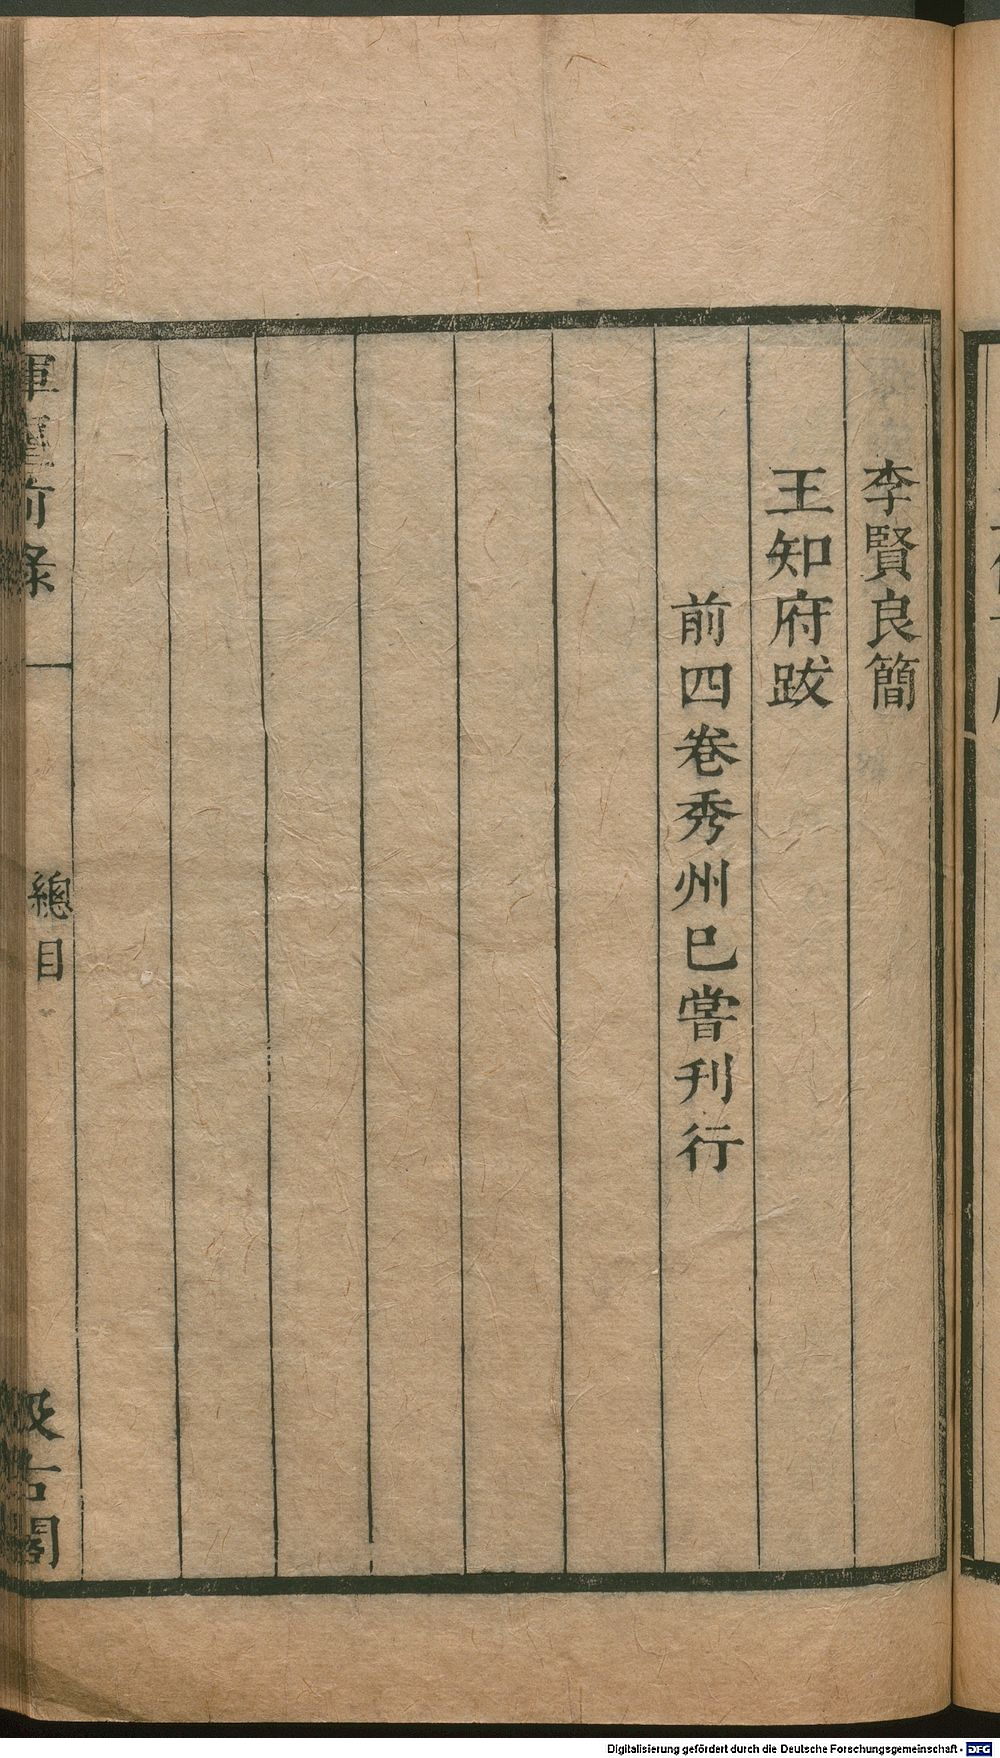 李賢良簡
王知府跋
前四卷秀州已嘗刊行
揮麈前錄
總目
汲古閣
Digitalisierung gefördert durch die Deutsche Forschungsgemeinschaft - DFG